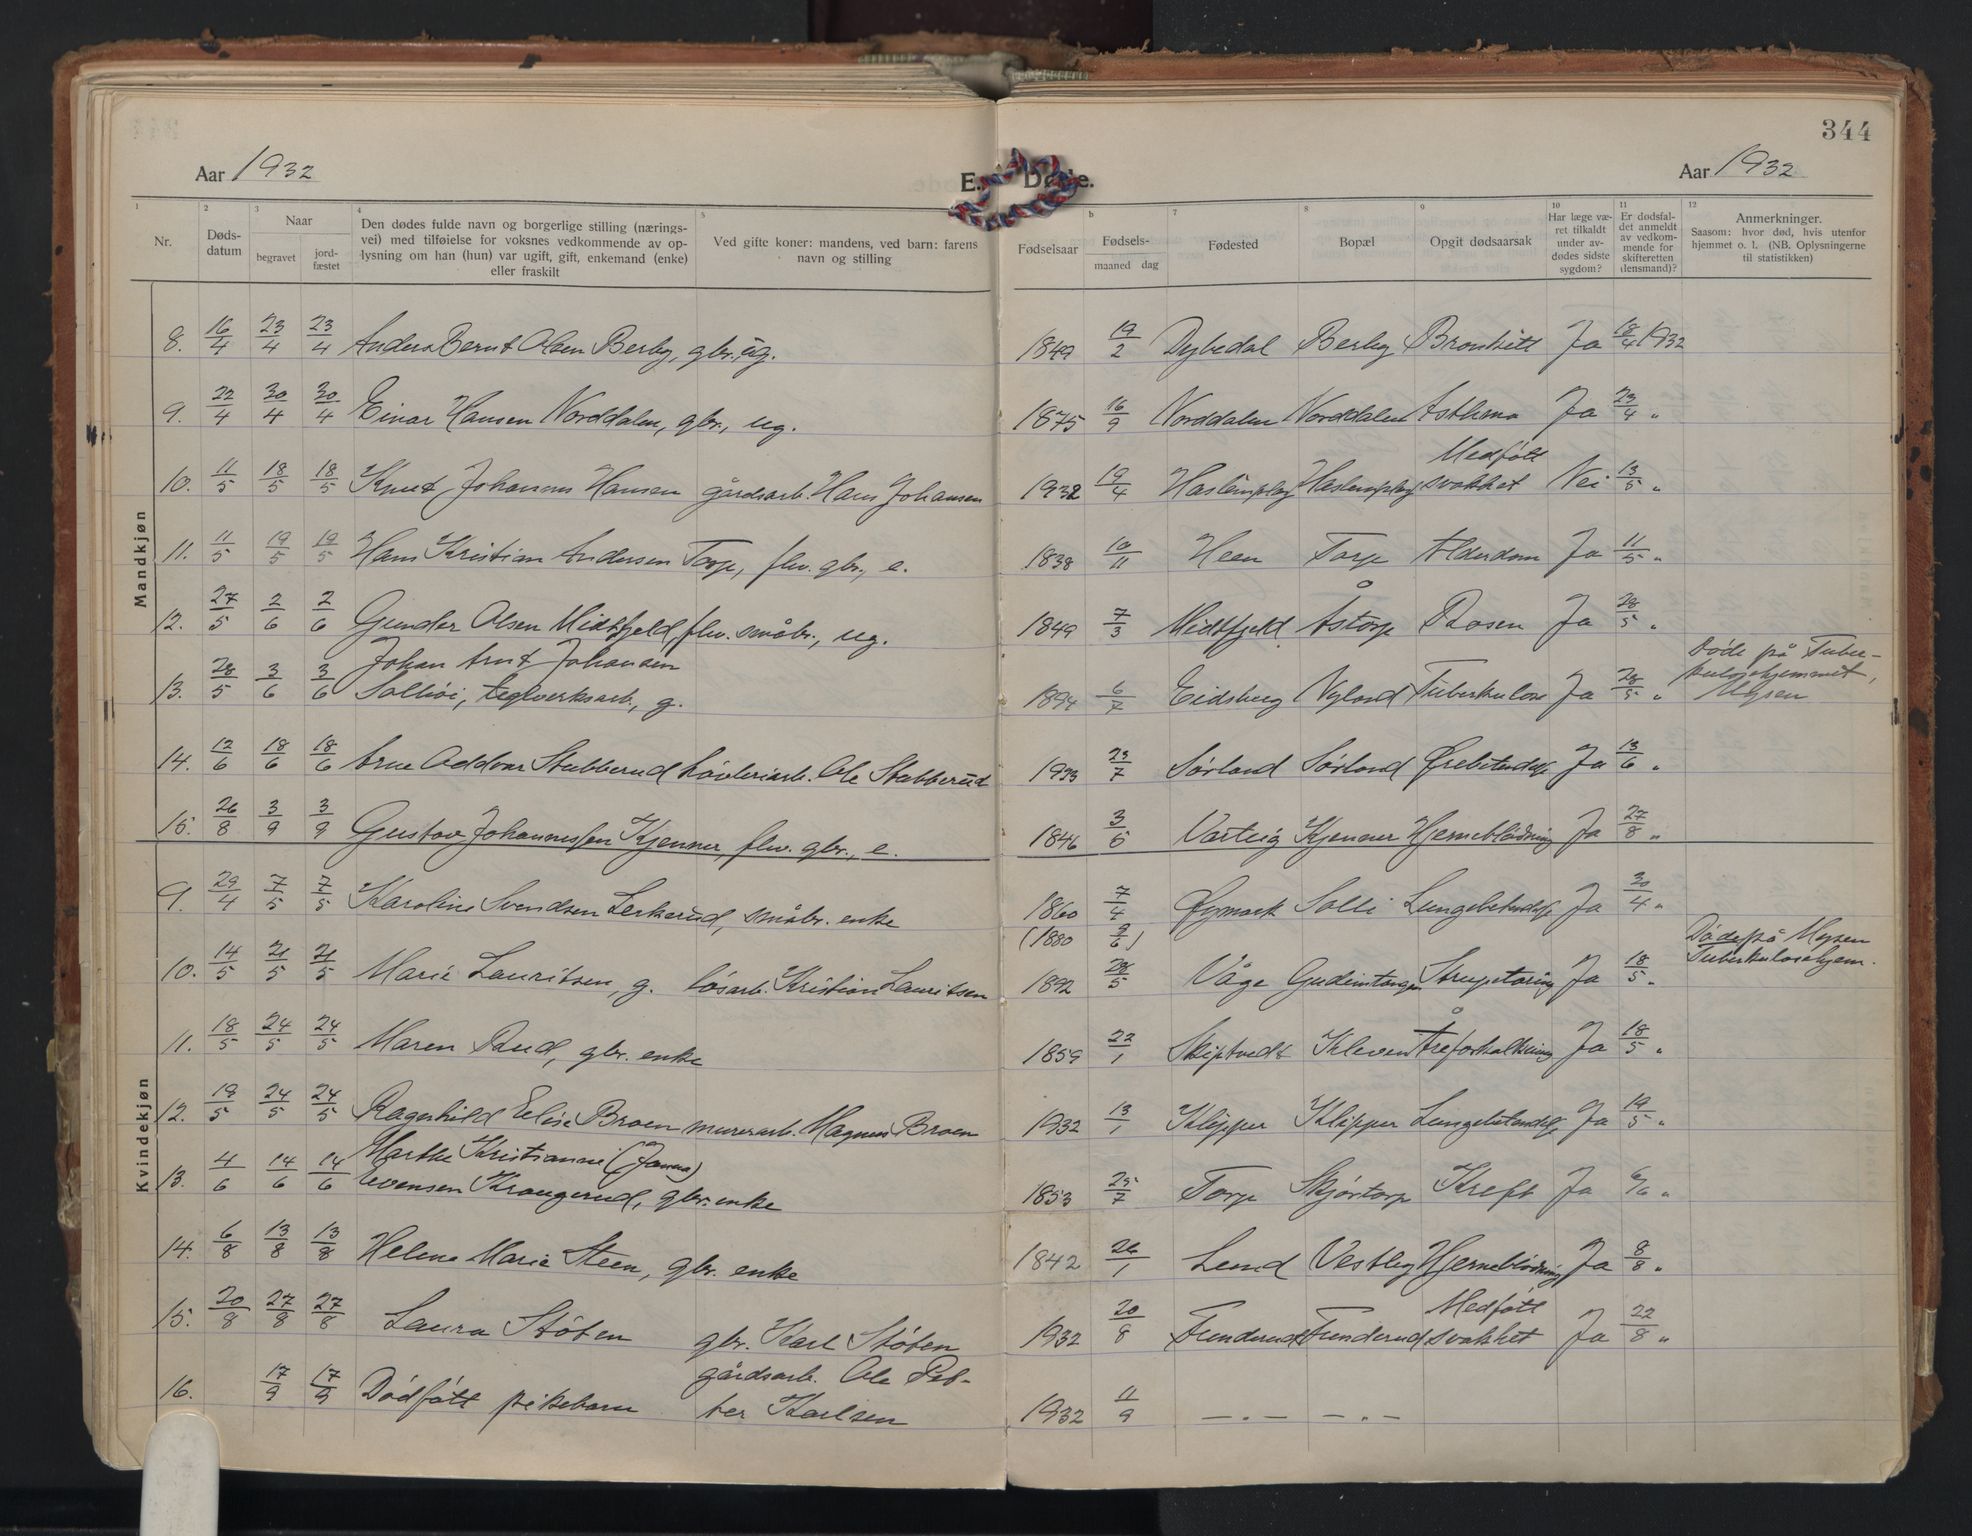 344
Aar 1932 E. Døde. Aar 1932
1 2 3 4 5 6 7 8 9 10 11 12
Nr. Døds-datum Naar begravet jord-fæstet Den dødes fulde navn og borgerlige stilling (nærings-vei) med tilføielse for voksnes vedkommende av op-lysning om han (hun) var ugift, gift, enkemand (enke) eller fraskilt Ved gifte koner: mandens, ved barn: farens navn og stilling Fødselsaar Fødsels-maaned dag Fødested Bopæl Opgit dødsaarsak Har læge væ-ret tilkaldt under av-dødes sidste sygdom? Er dødsfal-det anmeldt av vedkom-mende for skifteretten (lensmand)? Anmerkninger. Saasom: hvor død, hvis utenfor hjemmet o. l. (NB. Oplysningerne til statistikken)
Mandkjøn
8. 16/4 23/4 23/4 Anders Bernt Olsen Berby, gbr. ug. 1849 19/2 Dybedal Berby Bronkitt Ja 18/4 1932
9. 22/4 30/4 30/4 Einar Hansen Norddalen, gbr., ug. 1875 16/9 Norddalen Norddalen Asthma Ja 23/4 "
10. 11/5 18/5 18/5 Knut Johannes Hansen gårdsarb. Hans Johansen 1932 19/4 Medfött svakhet Nei 13/5 "
11. 11/5 19/5 19/5 Hans Kristian Andersen Torp, flv. gbr., e. 1838 10/11 Heen Torp Alderdom Ja 11/5 "
12. 27/5 2/6 2/6 Gunder Olsen Midtfjeld, flv. småbr., ug. 1849 7/3 Midtfjeld Åstorp Rosen Ja 28/5 "
13. 28/5 3/6 3/6 Johan Arnt Johansen
Solhöi, teglverksarb., g. 1894 6/7 Eidsberg Nyland Tuberkulose Ja 28/5 " Döde på Tuber-
kulosehjemmet,
Mysen
14. 12/6 18/6 18/6 Arne Oddvar Stubberud hövleriarb. Ole Stubberud 1923 23/7 Sørland Sørland Ørebetendelse Ja 13/6 "
15. 26/8 3/9 3/9 Gustav Johannessen Kjenner, flv. gbr., e. 1846 3/5 Varteig Kjenner Hjerneblödning Ja 27/8 "
Kvindekjøn
9. 29/4 7/5 7/5 Karoline Svendsen Lerkerud, småbr. enke 1860 7/4 Øymark Solli Lungebetendelse Ja 30/4 "
(1880 9/6)
10. 14/5 21/5 21/5 Marie Lauritsen, g. lösarb. Kristian Lauritsen 1892 28/5 Våge Gudeimtangen Strupetæring Ja 18/5 " Döde på Mysen
Tuberkulosehjem.
11. 18/5 24/5 24/5 Maren Rud, gbr. enke 1859 22/1 Skiptvedt Kleven Åreforkalkning Ja 18/5 "
12. 19/5 24/5 24/5 Ragnhild Elise Broen murerarb. Magnus Broen 1932 13/1 Klipper Klipper Lungebetendelse Ja 19/5 "
13. 4/6 14/6 14/6 Marthe Kristianne (Janna)
Evensen Krangerud, gbr. enke 1853 25/7 Torp Skjörtorp Kreft Ja 6/6 "
14. 6/8 13/8 13/8 Helene Marie Steen, gbr. enke 1842 26/1 Lund Vestby Hjerneblödning Ja 8/8 "
15. 20/8 27/8 27/8 Laura Stöten gbr. Karl Stöten 1932 20/8 Funderud Funderud Medfött svakhet Ja 22/8 "
16. 17/9 17/9 Dödfött pikebarn gårdsarb. Ole Pet-
ter Karlsen 1932 11/9 — . — — . —